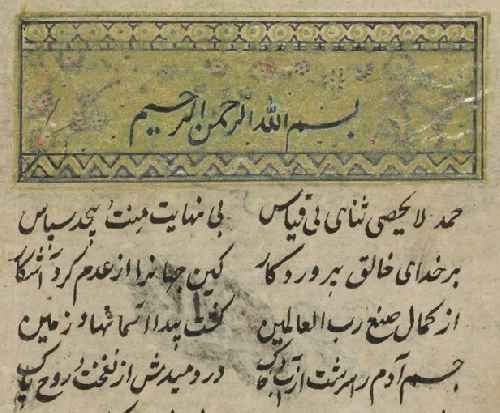 بسم الله الرحمن الرحیم
حمد لا یحصی ثنای بی قیاس بی نهایت منت بیحد سپاس
بر خدای خالق پروردکار کین جهانرا از عدم کرد آشکار
از کمال صنع رب العالمین کشت پیدا اسمانها و زمین
جسم آدم را سرشت از آب خاک در دمیدش از نفخت روح پاک